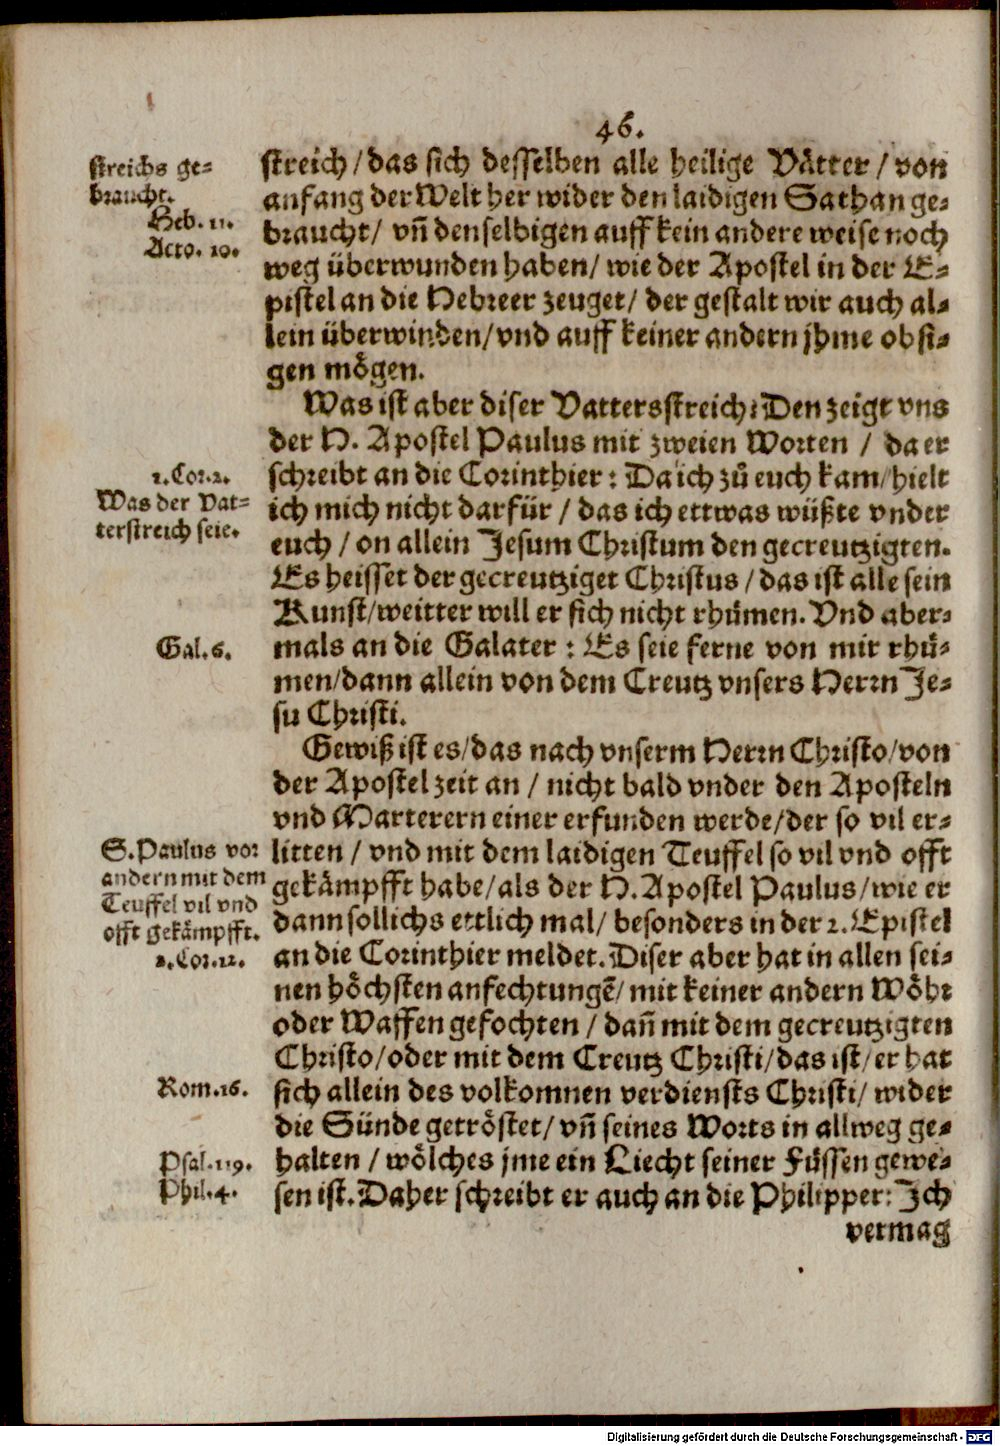 46.
streichs ge-
braucht.
Heb. 11.
Acto. 10.
streich / das sich desselben alle heilige Vätter / von
anfang der Welt her wider den laidigen Sathan ge-
braucht / vñ denselbigen auff kein andere weise noch
weg überwunden haben / wie der Apostel in der E-
pistel an die Hebreer zeuget / der gestalt wir auch al-
lein überwinden / vnd auff keiner andern jhme obsi-
gen mögen.
Was ist aber diser Vattersstreich? Den zeigt vns
der H. Apostel Paulus mit zweien Worten / da er
1. Cor. 2.
Was der Vat-
terstreich seie.
schreibt an die Corinthier: Da ich zů euch kam / hielt
ich mich nicht darfür / das ich ettwas wüßte vnder
euch / on allein Jesum Christum den gecreutzigten.
Es heisset der gecreutziget Christus / das ist alle sein
Kunst / weitter will er sich nicht rhümen. Vnd aber-
Gal. 6.
mals an die Galater: Es seie ferne von mir rhü-
men / dann allein von dem Creutz vnsers Herrn Je-
su Christi.
Gewiß ist es / das nach vnserm Herrn Christo / von
der Apostel zeit an / nicht bald vnder den Aposteln
vnd Marterern einer erfunden werde / der so vil er-
S. Paulus vor
andern mit dem
Teuffel vil vnd
offt gekämpfft.
2. Cor. 12.
litten / vnd mit dem laidigen Teuffel so vil vnd offt
gekämpfft habe / als der H. Apostel Paulus / wie er
dann sollichs ettlich mal / besonders in der 2. Epistel
an die Corinthier meldet. Diser aber hat in allen sei-
nen höchsten anfechtungē / mit keiner andern Wöhr
oder Waffen gefochten / dañ mit dem gecreutzigten
Christo / oder mit dem Creutz Christi / das ist / er hat
Rom. 16.
sich allein des volkomnen verdiensts Christi / wider
die Sünde getröstet / vñ seines Worts in allweg ge-
Psal. 119.
Phil. 4.
halten / wölches jme ein Liecht seiner Füssen gewe-
sen ist. Daher schreibt er auch an die Philipper: Ich
vermag
Digitalisierung gefördert durch die Deutsche Forschungsgemeinschaft - DFG